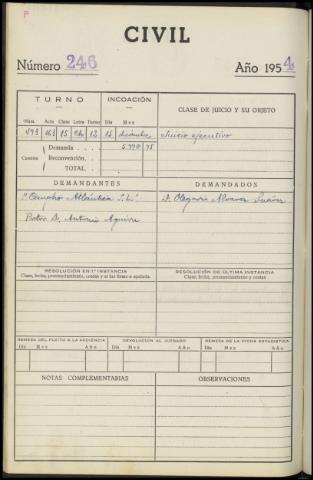 P
CIVIL
Número 246 Año 1954
TURNO INCOACIÓN CLASE DE JUICIO Y SU OBJETO
Núm. Acta Clase Letra Turno Día Mes
12 diciembre Juicio ejecutivo
Cuantía Demanda
Reconvención
TOTAL
DEMANDANTES DEMANDADOS
Atlántica S.L." D. Olegario Suárez
D. Antonio Aguirre
RESOLUCIÓN EN 1.ª INSTANCIA RESOLUCIÓN DE ÚLTIMA INSTANCIA
Clase, fecha, pronunciamiento, costas y si fué firme o apelada Clase, fecha, pronunciamiento y costas
REMESA DEL PLEITO A LA AUDIENCIA DEVOLUCIÓN AL JUZGADO REMESA DE LA FICHA ESTADÍSTICA
Día Mes Año Día Mes Año Día Mes Año
NOTAS COMPLEMENTARIAS OBSERVACIONES